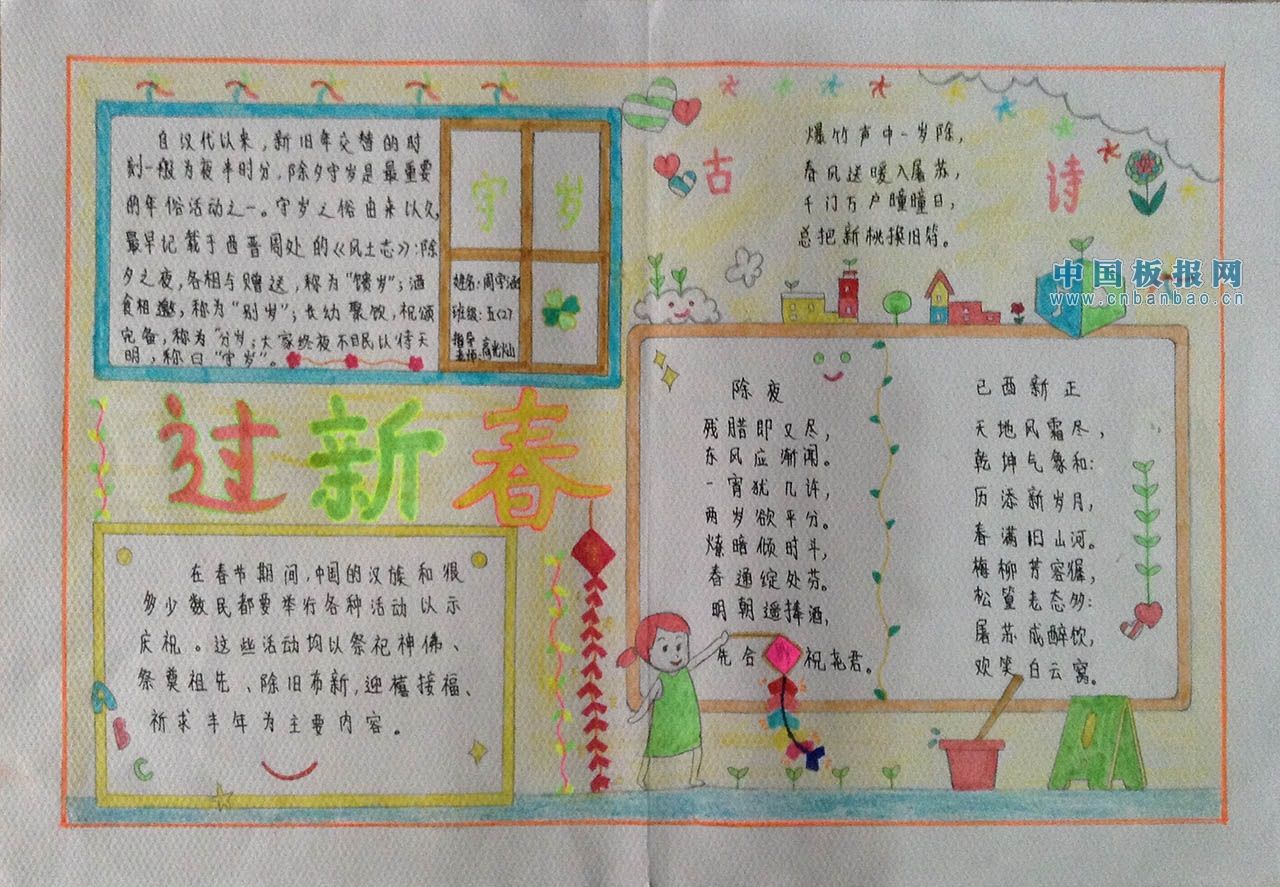 自汉代以来，新旧年交替的时
刻一般为夜半时分，除夕守岁是最重要
的年俗活动之一。守岁之俗由来以久，
最早记载于西晋周处的《风土志》：除
夕之夜，各相与赠送，称为“馈岁”；酒
食相邀，称为“别岁”；长幼聚饮，祝颂
完备，称为“分岁；大家终夜不眠以待天
明，称曰“守岁”。
守岁
姓名：周宇涵
班级：五(2)
指导
老师：高光灿
过新春
在春节期间，中国的汉族和很
多少数民都要举行各种活动以示
庆祝。这些活动均以祭祀神佛、
祭奠祖先、除旧布新，迎禧接福、
祈求丰年为主要内容。
A
B
C
古诗
爆竹声中一岁除，
春风送暖入屠苏，
千门万户曈曈日，
总把新桃换旧符。
中国板报网
www.cnbanbao.cn
除夜
残腊即又尽，
东风应渐闻。
一宵犹几许，
两岁欲平分。
燎暗倾时斗，
春通绽处芬。
明朝遥捧酒，
先合祝尧君。
己酉新正
天地风霜尽，
乾坤气象和：
历添新岁月，
春满旧山河。
梅柳芳容徲，
松篁老态多：
屠苏成醉饮，
欢笑白云窝。